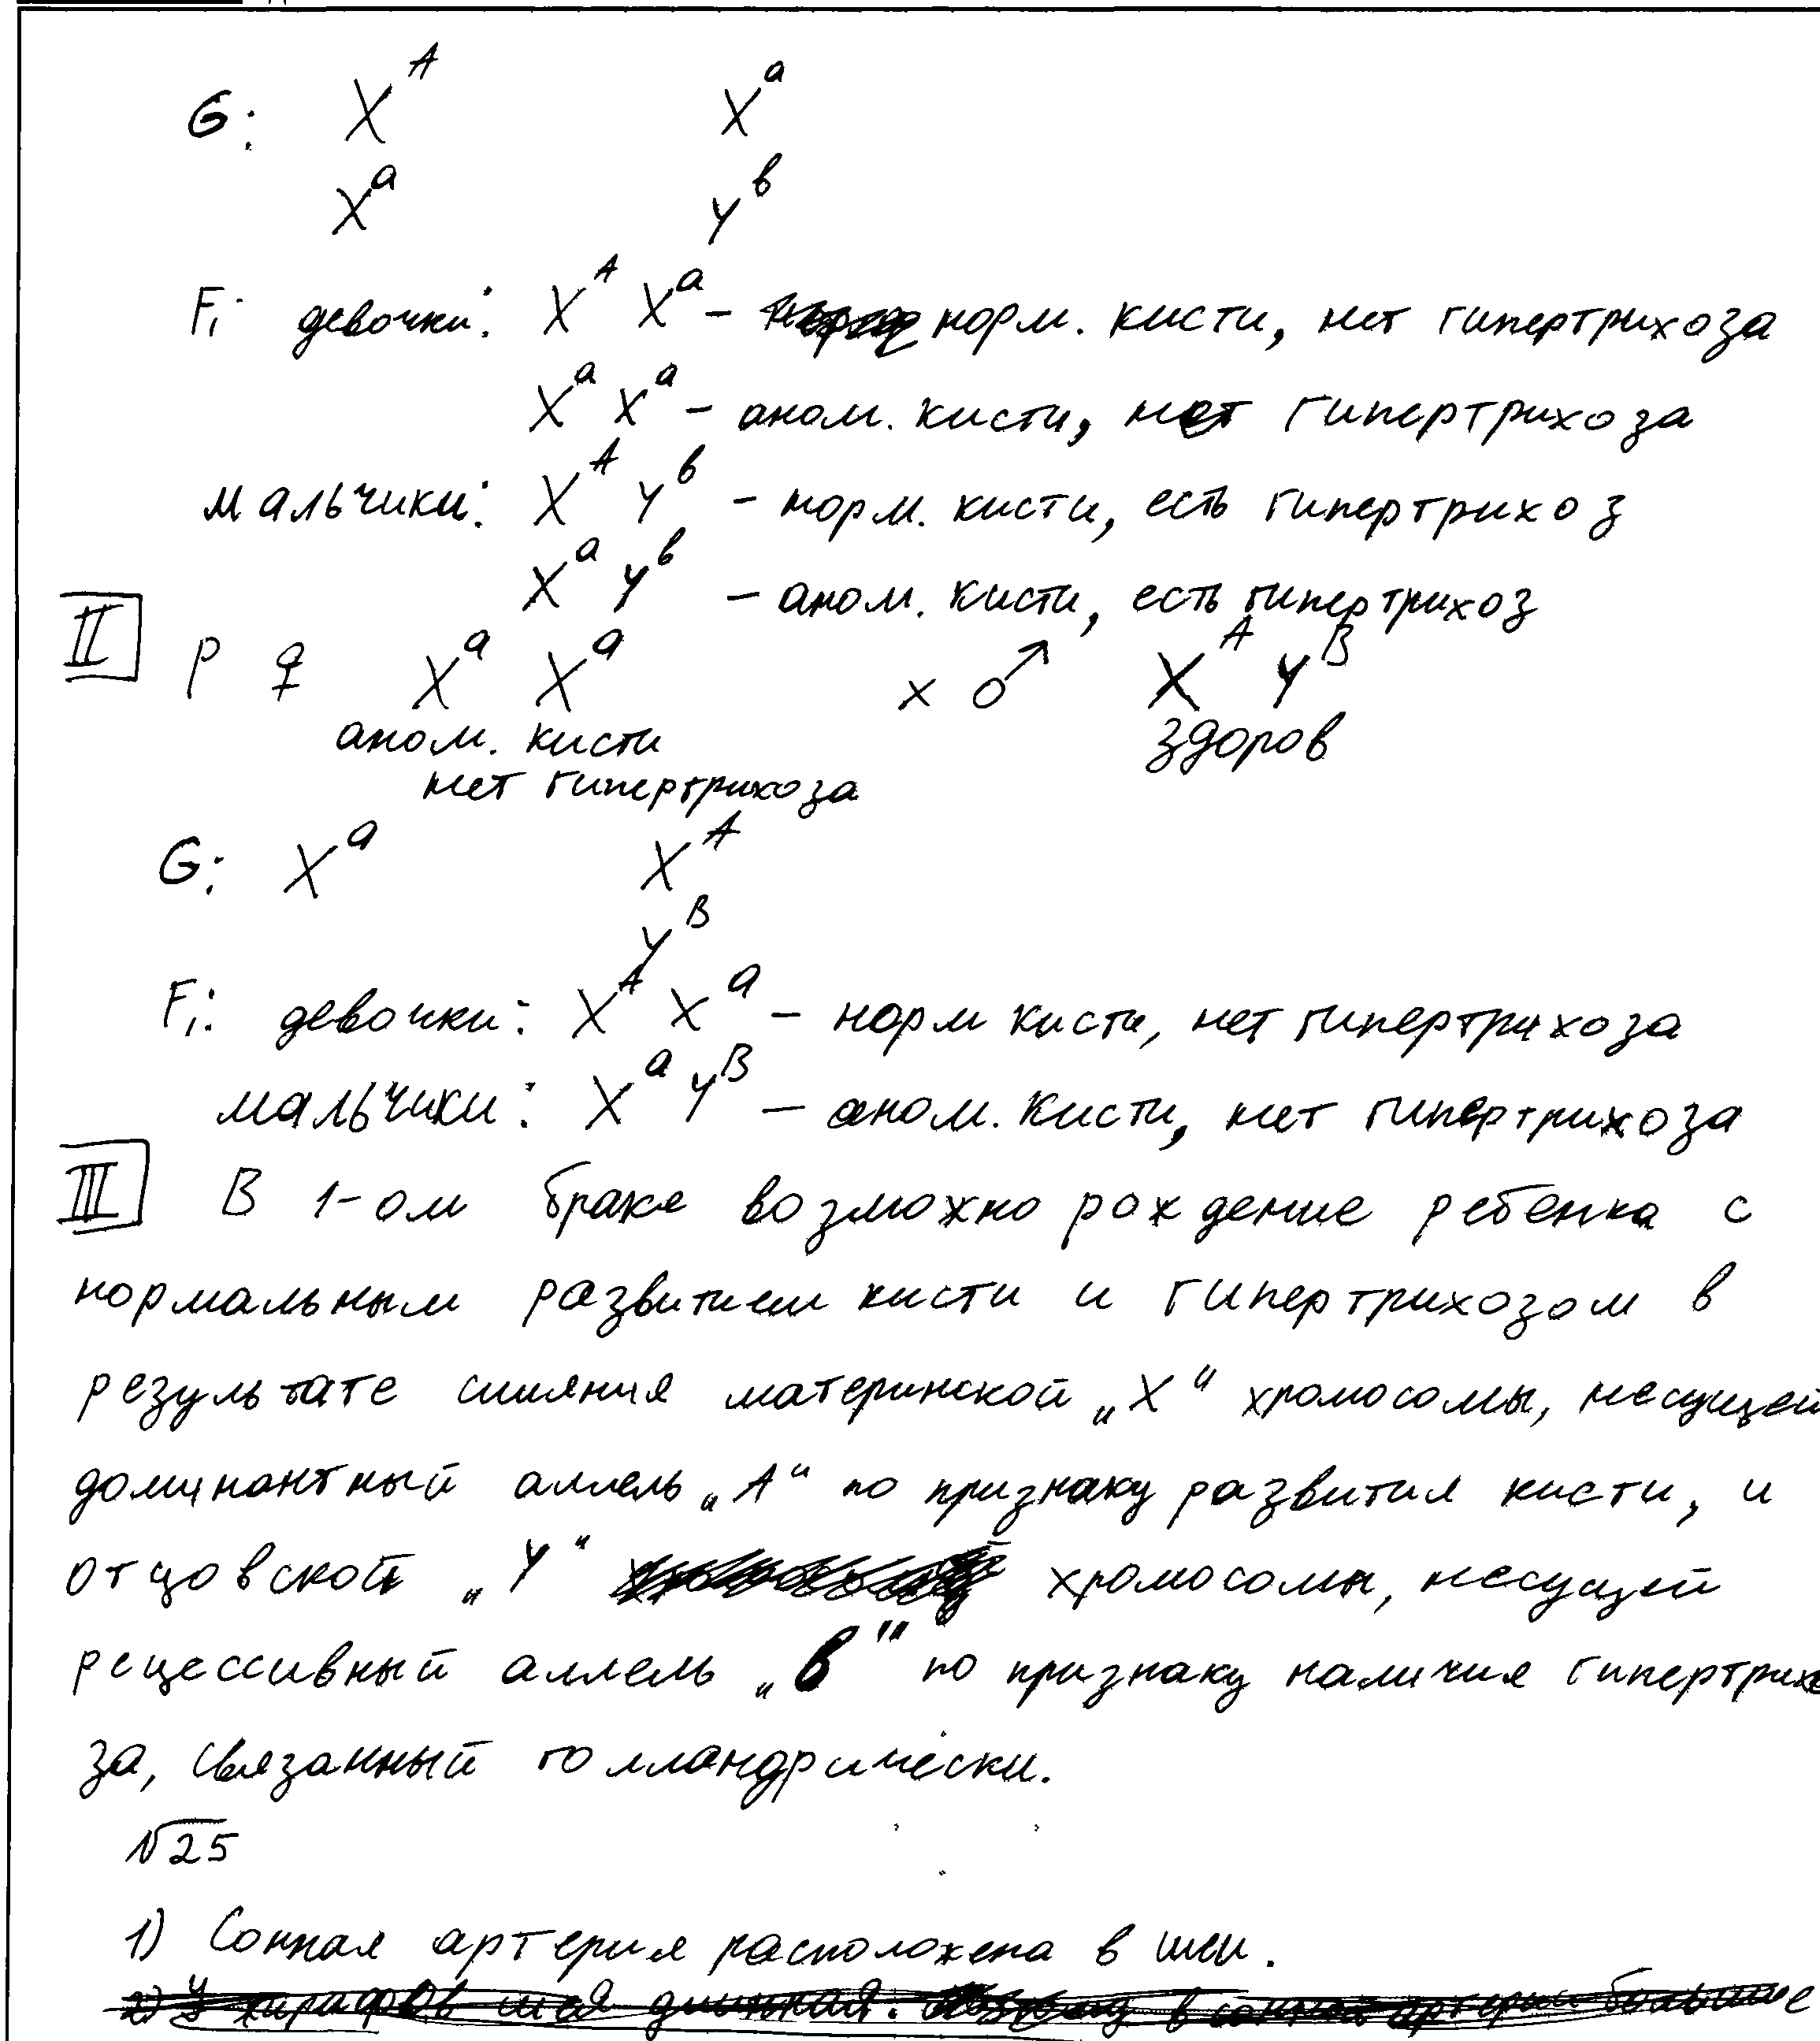 G: X^A X^a
X^a Y^b
F₁ девочки: X^A X^a – норм. кисти, нет гипертрихоза
X^a X^a – аном. кисти, нет гипертрихоза
мальчики: X^A Y^b – норм. кисти, есть гипертрихоз
X^a Y^b – аном. кисти, есть гипертрихоз
II P ♀ X^a X^a × ♂ X^A Y^B
аном. кисти здоров
нет гипертрихоза
G: X^a X^A
Y^B
F₁: девочки: X^A X^a – норм кисти, нет гипертрихоза
мальчики: X^a Y^B – аном. кисти, нет гипертрихоза
III В 1-ом браке возможно рождение ребенка с
нормальным развитием кисти и гипертрихозом в
результате слияния материнской „X“ хромосомы, несущей
доминантный аллель „А“ по признаку развития кисти, и
отцовской „Y“ хромосомы, несущей
рецессивный аллель „b“ по признаку наличия гипертрихо
за, связанный голландрически.
№25
1) Сонная артерия расположена в шеи.
2) У жирафов шея длинная. в сонной артерии больше